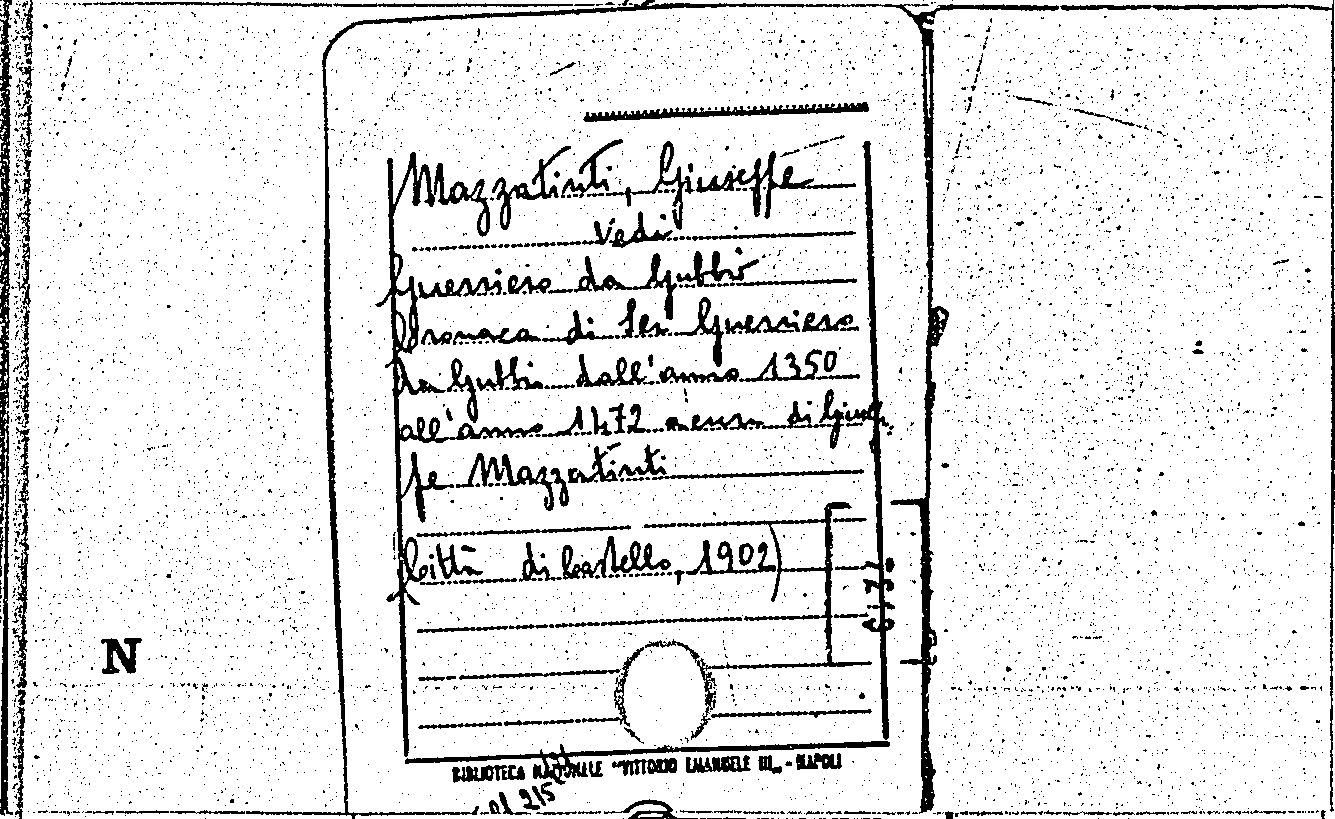 Mazzatinti, Giuseppe
Vedi
Guerriero da Gubbio
Cronaca di Ser Guerriero
da Gubbio dall'anno 1350
all'anno 1472 a cura di Giusep
pe Mazzatinti
(Città di Castello, 1902)
N
BIBLIOTECA NAZIONALE "VITTORIO EMANUELE III„ - NAPOLI